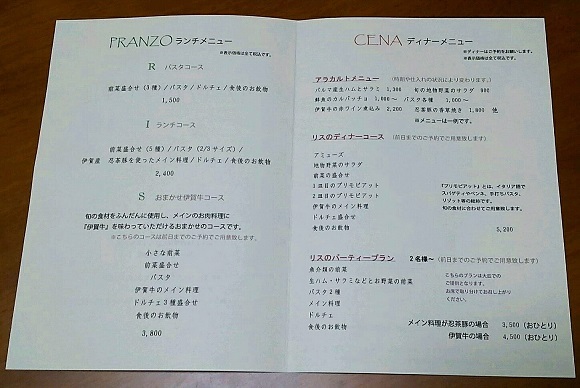 PRANZO ランチメニュー
※表示価格は全て税込です。
R パスタコース
前菜盛合せ(3種)/パスタ/ドルチェ/食後のお飲物
1,500
I ランチコース
前菜盛合せ(5種)/パスタ(2/3サイズ)/
伊賀産 忍茶豚を使ったメイン料理/ドルチェ/食後のお飲物
2,400
S おまかせ伊賀牛コース
旬の食材をふんだんに使用し、メインのお肉料理に
『伊賀牛』を味わっていただけるおまかせのコースです。
※こちらのコースは前日までのご予約でご用意致します。
小さな前菜
前菜盛合せ
パスタ
伊賀牛のメイン料理
ドルチェ3種盛合せ
食後のお飲物
3,800
CENA ディナーメニュー
※ディナーはご予約をお願いします。
※表示価格は全て税込です。
アラカルトメニュー (時期や仕入れの状況により変わります。)
パルマ産生ハムとサラミ 1,300 旬の地物野菜のサラダ 900
鮮魚のカルパッチョ 1,000~ パスタ各種 1,000~
伊賀牛の赤ワイン煮込み 2,200 忍茶豚の香草焼き 1,800 他
※メニューは一例です。
リスのディナーコース (前日までのご予約でご用意致します)
アミューズ
地物野菜のサラダ
前菜の盛合せ
1皿目のプリモピアット
2皿目のプリモピアット
伊賀牛のメイン料理
ドルチェ盛合せ
食後のお飲物
『プリモピアット』とは、イタリア語で
スパゲティやペンネ、手打ちパスタ、
リゾット等の総称です。
旬の食材に合わせてご用意致します。
5,200
リスのパーティープラン 2名様~(前日までのご予約でご用意致します)
魚介類の前菜
生ハム・サラミなどとお野菜の前菜
パスタ2種
メイン料理
ドルチェ
食後のお飲物
こちらのプランは大皿での
ご提供となります。
お席で取り分けてお召し上がり
ください。
メイン料理が忍茶豚の場合 3,500(おひとり)
伊賀牛の場合 4,500(おひとり)